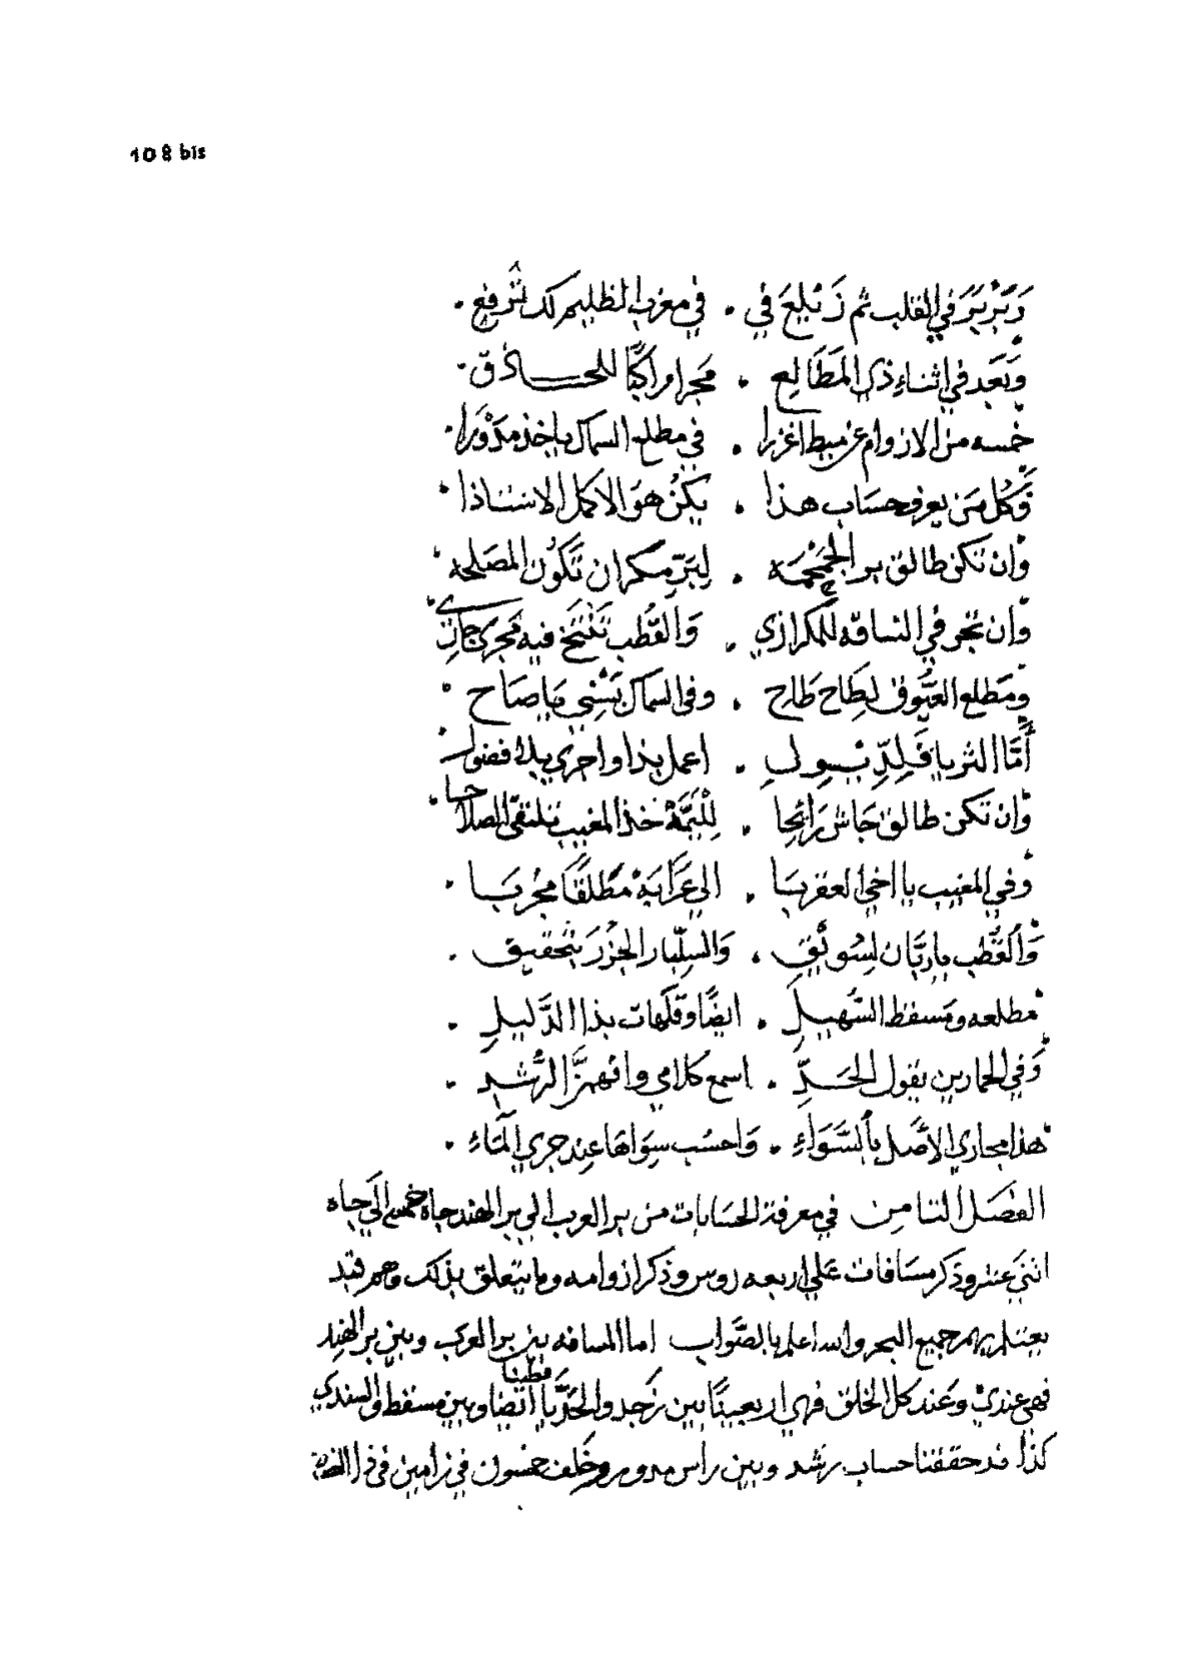 108 bis
وَبَرْبَرَ في القلب ثم زَيْلِعَ في . في مغرب الظليم كد تُرفع .
وَبَعد في اثناء ذي المَطَالِع . مجرا مراكبًا للحـــاذق .
خمسه من الازوام عن ميط اغزرا . في مطلع السماك ياخذ مَدْوَرَا .
وَكُل مَن يعرف حسَاب هذا . يَكُنْ هوَ الاكمل الاستاذا .
وان تكن طالق بر الجُمْجُمَه . لِبَرِّ مكران تَكُون المصَلحه .
وان تجر في الساقه للكرازي . وَالقُطب تَنْتَخ فيه مَجرى جارى .
ومَطلع العَيُّوق لِطَاح طَاح . وفي السماك بَسْنِي يا صَاح .
أمَّا الثريا فَلِدِّيُولِ . اعمل بذا واجري بلا فضول .
وان تكن طالق جَاش رَائِحا . لِلْيَمَّة خذ المغيب تلتقى الصلاحا .
وفي المغيب يا اخي العقربَا . الي عَرَابَة مَطْلَقًا مُجربَا .
وَالقُطب يا ربَّان لِسُوَيْقِ . وَالسِّلبار الجُزْرَ بتحقيق .
مطلعه ومسقط السُّهيلِ . ايضًا وقَلَهات بذا الدَّليلِ .
وَفي الحمارين يقول الحَـدِّ . اسمع كلامي وافهمَنَّ الرُّشدِ .
هذا مجاري الأَصْل بِالسَّوَاءِ . وَاحسُب سِوَاهَا عِند جري المَاءِ .
الفصَل الثامن في معرفة الحسَابات من بر العرب الي بر الهند جاه خمس الَي جاه
اثني عشر وذكر مسَافات عَلي اربعه روس وذكر ازوامه وما يتعلق بذلك وهم قيد
يعتبر بهم جميع البحر والله اعلم بالصَّواب اما المسافه بين بر العرب وبين بر الهند
فهي عندي وعَند كل الخلق فهي اربعينًا بين رَجد والحَدِّ يا فطنا ايضا وبين مسقط والسندي
كذا قد حققنا حساب رشد وبين راس مدور وخلف خمسون في زامين في ذا